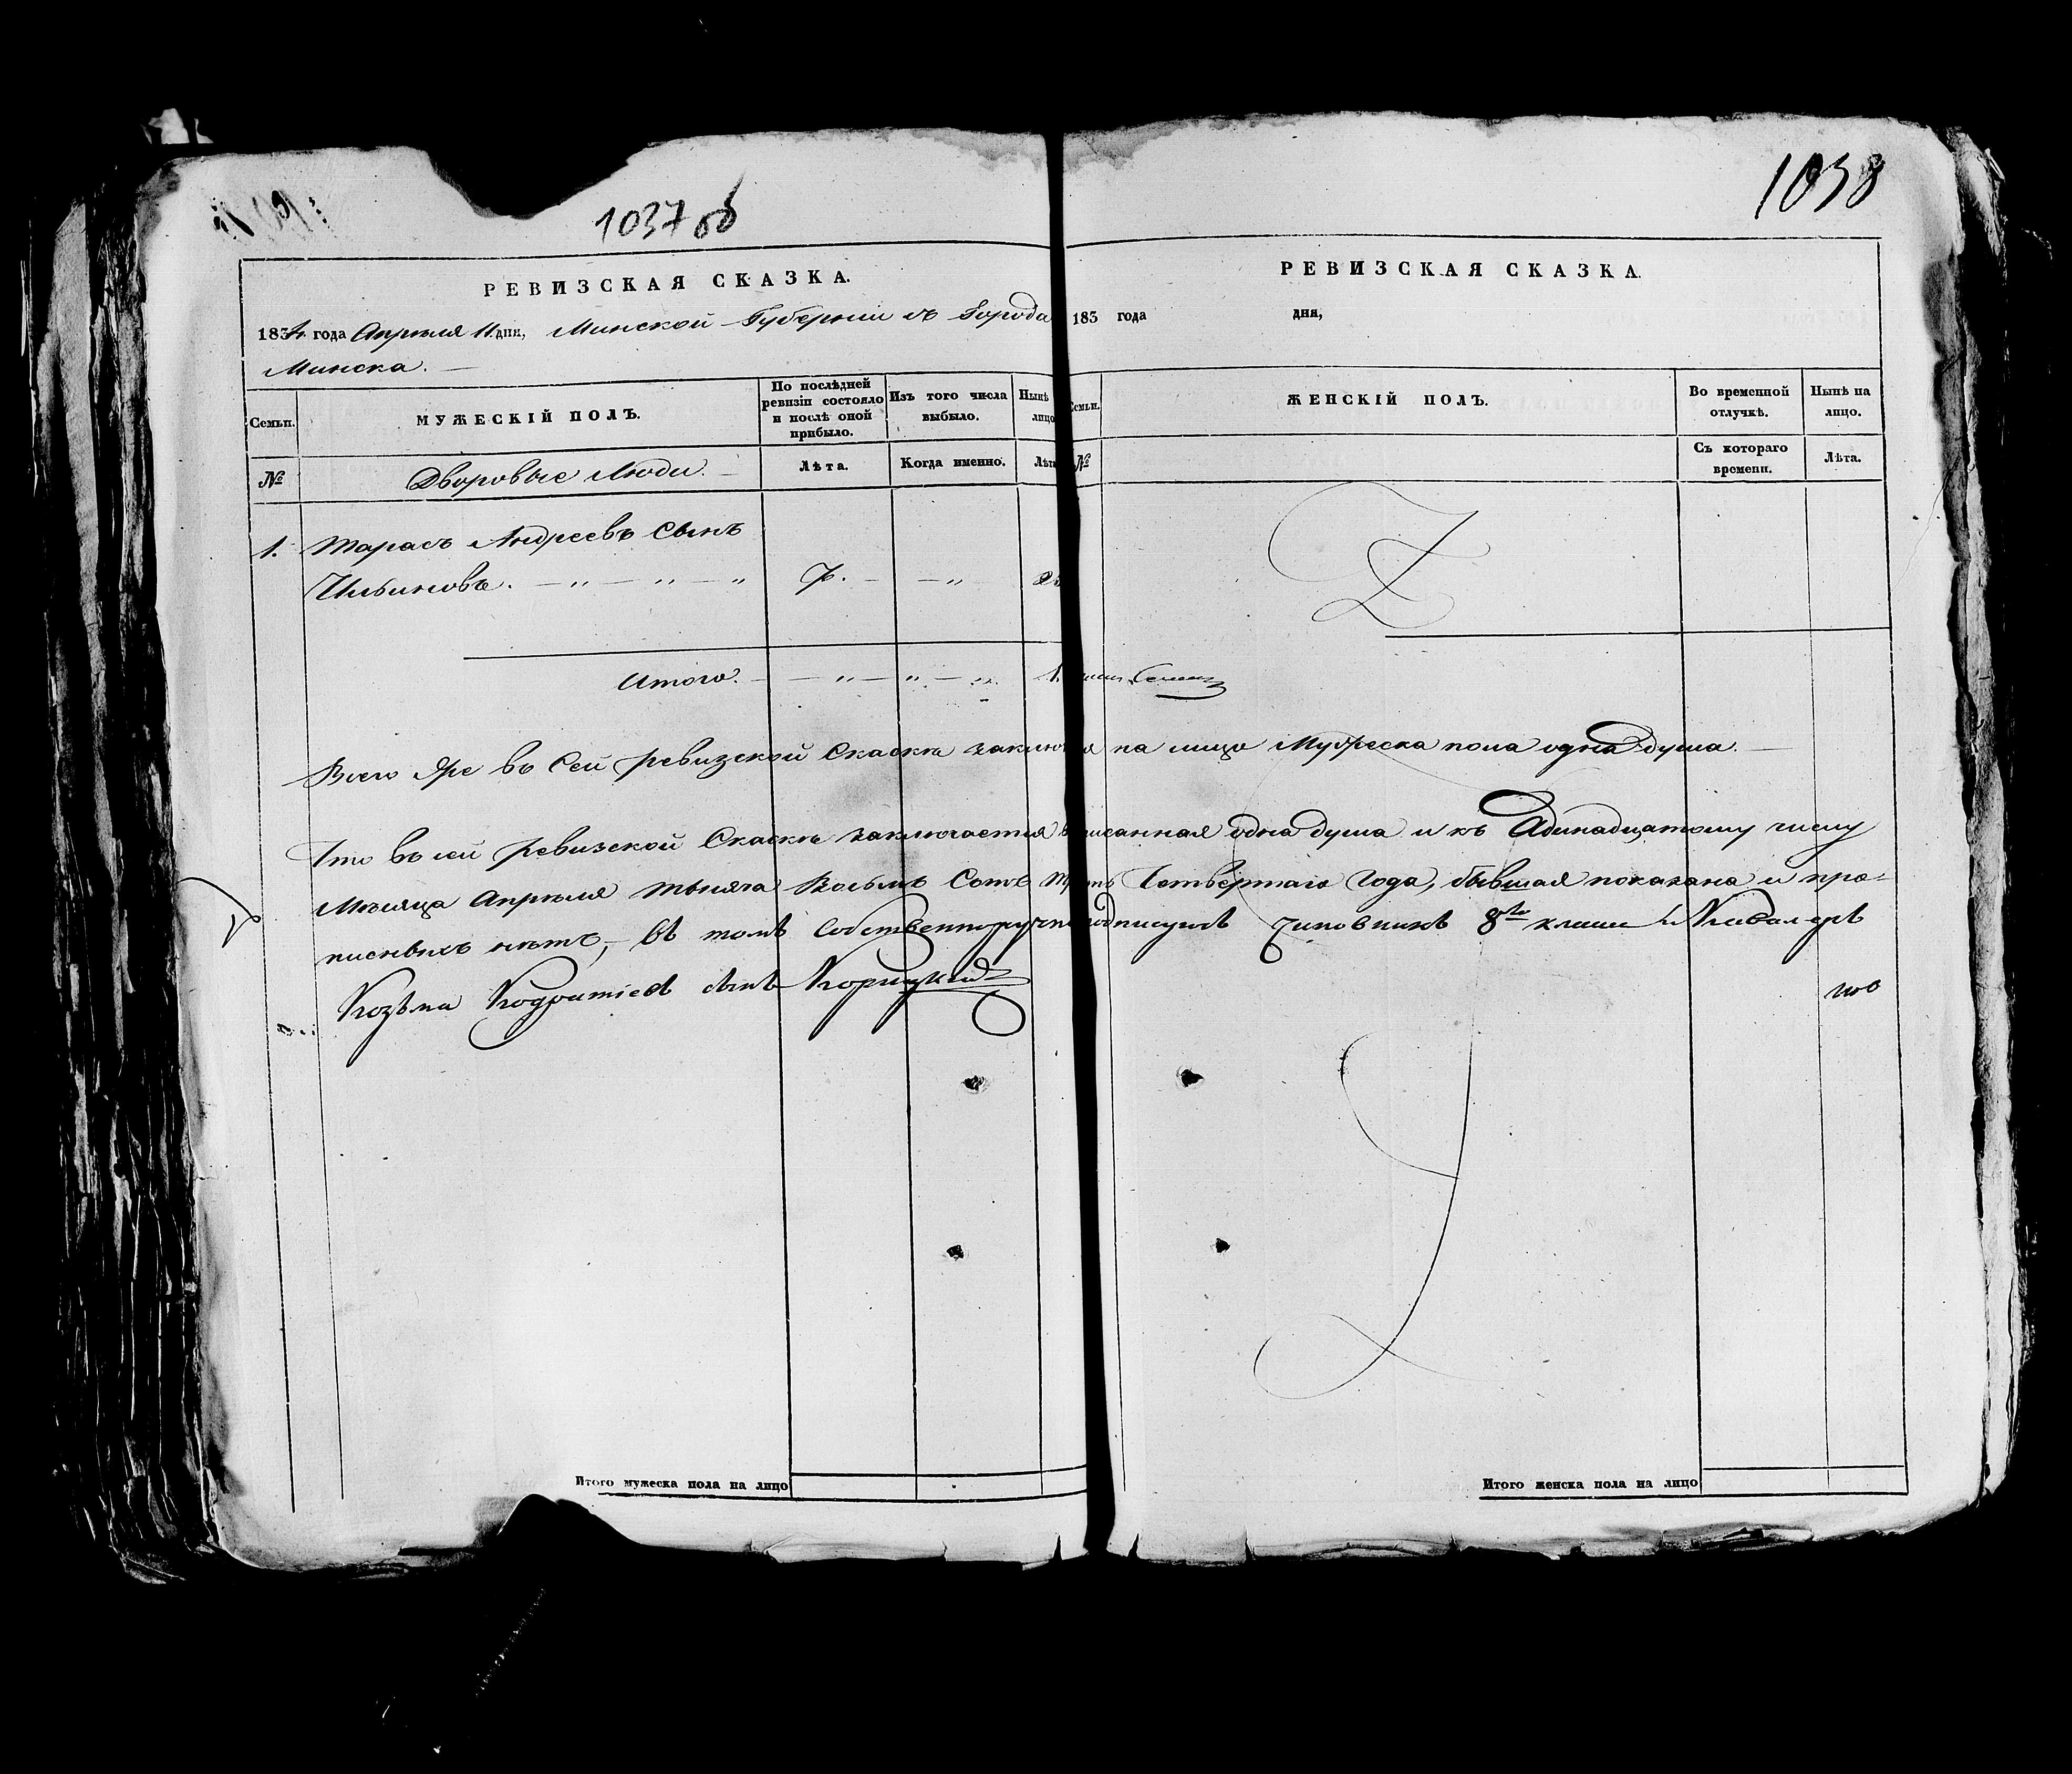 1037 об
1038
РЕВИЗСКАЯ СКАЗКА.
1834 года Апреля 11 дни, Минской Губернии въ Города
Минска.
Семьи.
МУЖЕСКІЙ ПОЛЪ.
По послѣдней ревизіи состояло и послѣ оной прибыло.
Изъ того числа выбыло.
Нынѣ лицо
№
Дворовые Люди.
Лѣта.
Когда именно.
Лѣта
1. Тарасъ Андреевъ Сынъ
Ильиновъ. — „ — „ — „ 7. — — „
Итого. — — „ — „ — „ 1.
РЕВИЗСКАЯ СКАЗКА.
183 года дня,
Семьи.
ЖЕНСКІЙ ПОЛЪ.
Во временной отлучкѣ.
Нынѣ на лицо.
№
Съ котораго времени.
Лѣта.
Всего Же въ Сей ревизской Скаскѣ на лицо Мужеска пола одна душа. —
Что въ сей ревизской Скаскѣ заключается одна душа и къ Адинадцатому числу
Мѣсяца Апреля тысяча Восьмъ Сотъ Четвертаго Года, бывшая показана и про-
писныхъ нѣтъ, — въ томъ Собственноручно подписуюсь Чиновникъ 8го класса и Кавалеръ
Козьма сынъ Корицкий
Итого мужеска пола на лицо
Итого женска пола на лицо